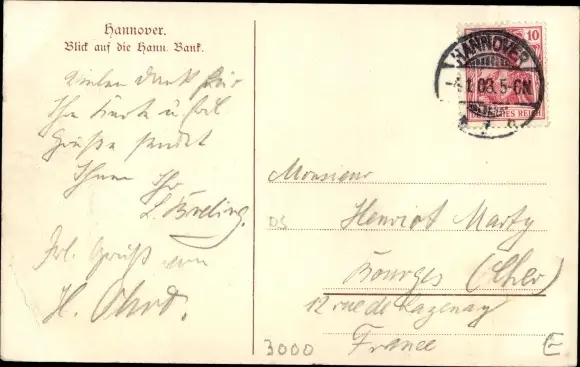 Hannover.
Blick auf die Hann. Bank.
Vielen Dank für
Ihre Karte u. viel
Grüße sendet
Ihnen Ihr
L. Breling.
Frl. Gruß von
H.
10
HANNOVER
03.5-6N
DEUTSCHES REICH
Monsieur
DS
Henriot Marty
Bourges (Cher)
12 rue de Lazenay
France
3000
E